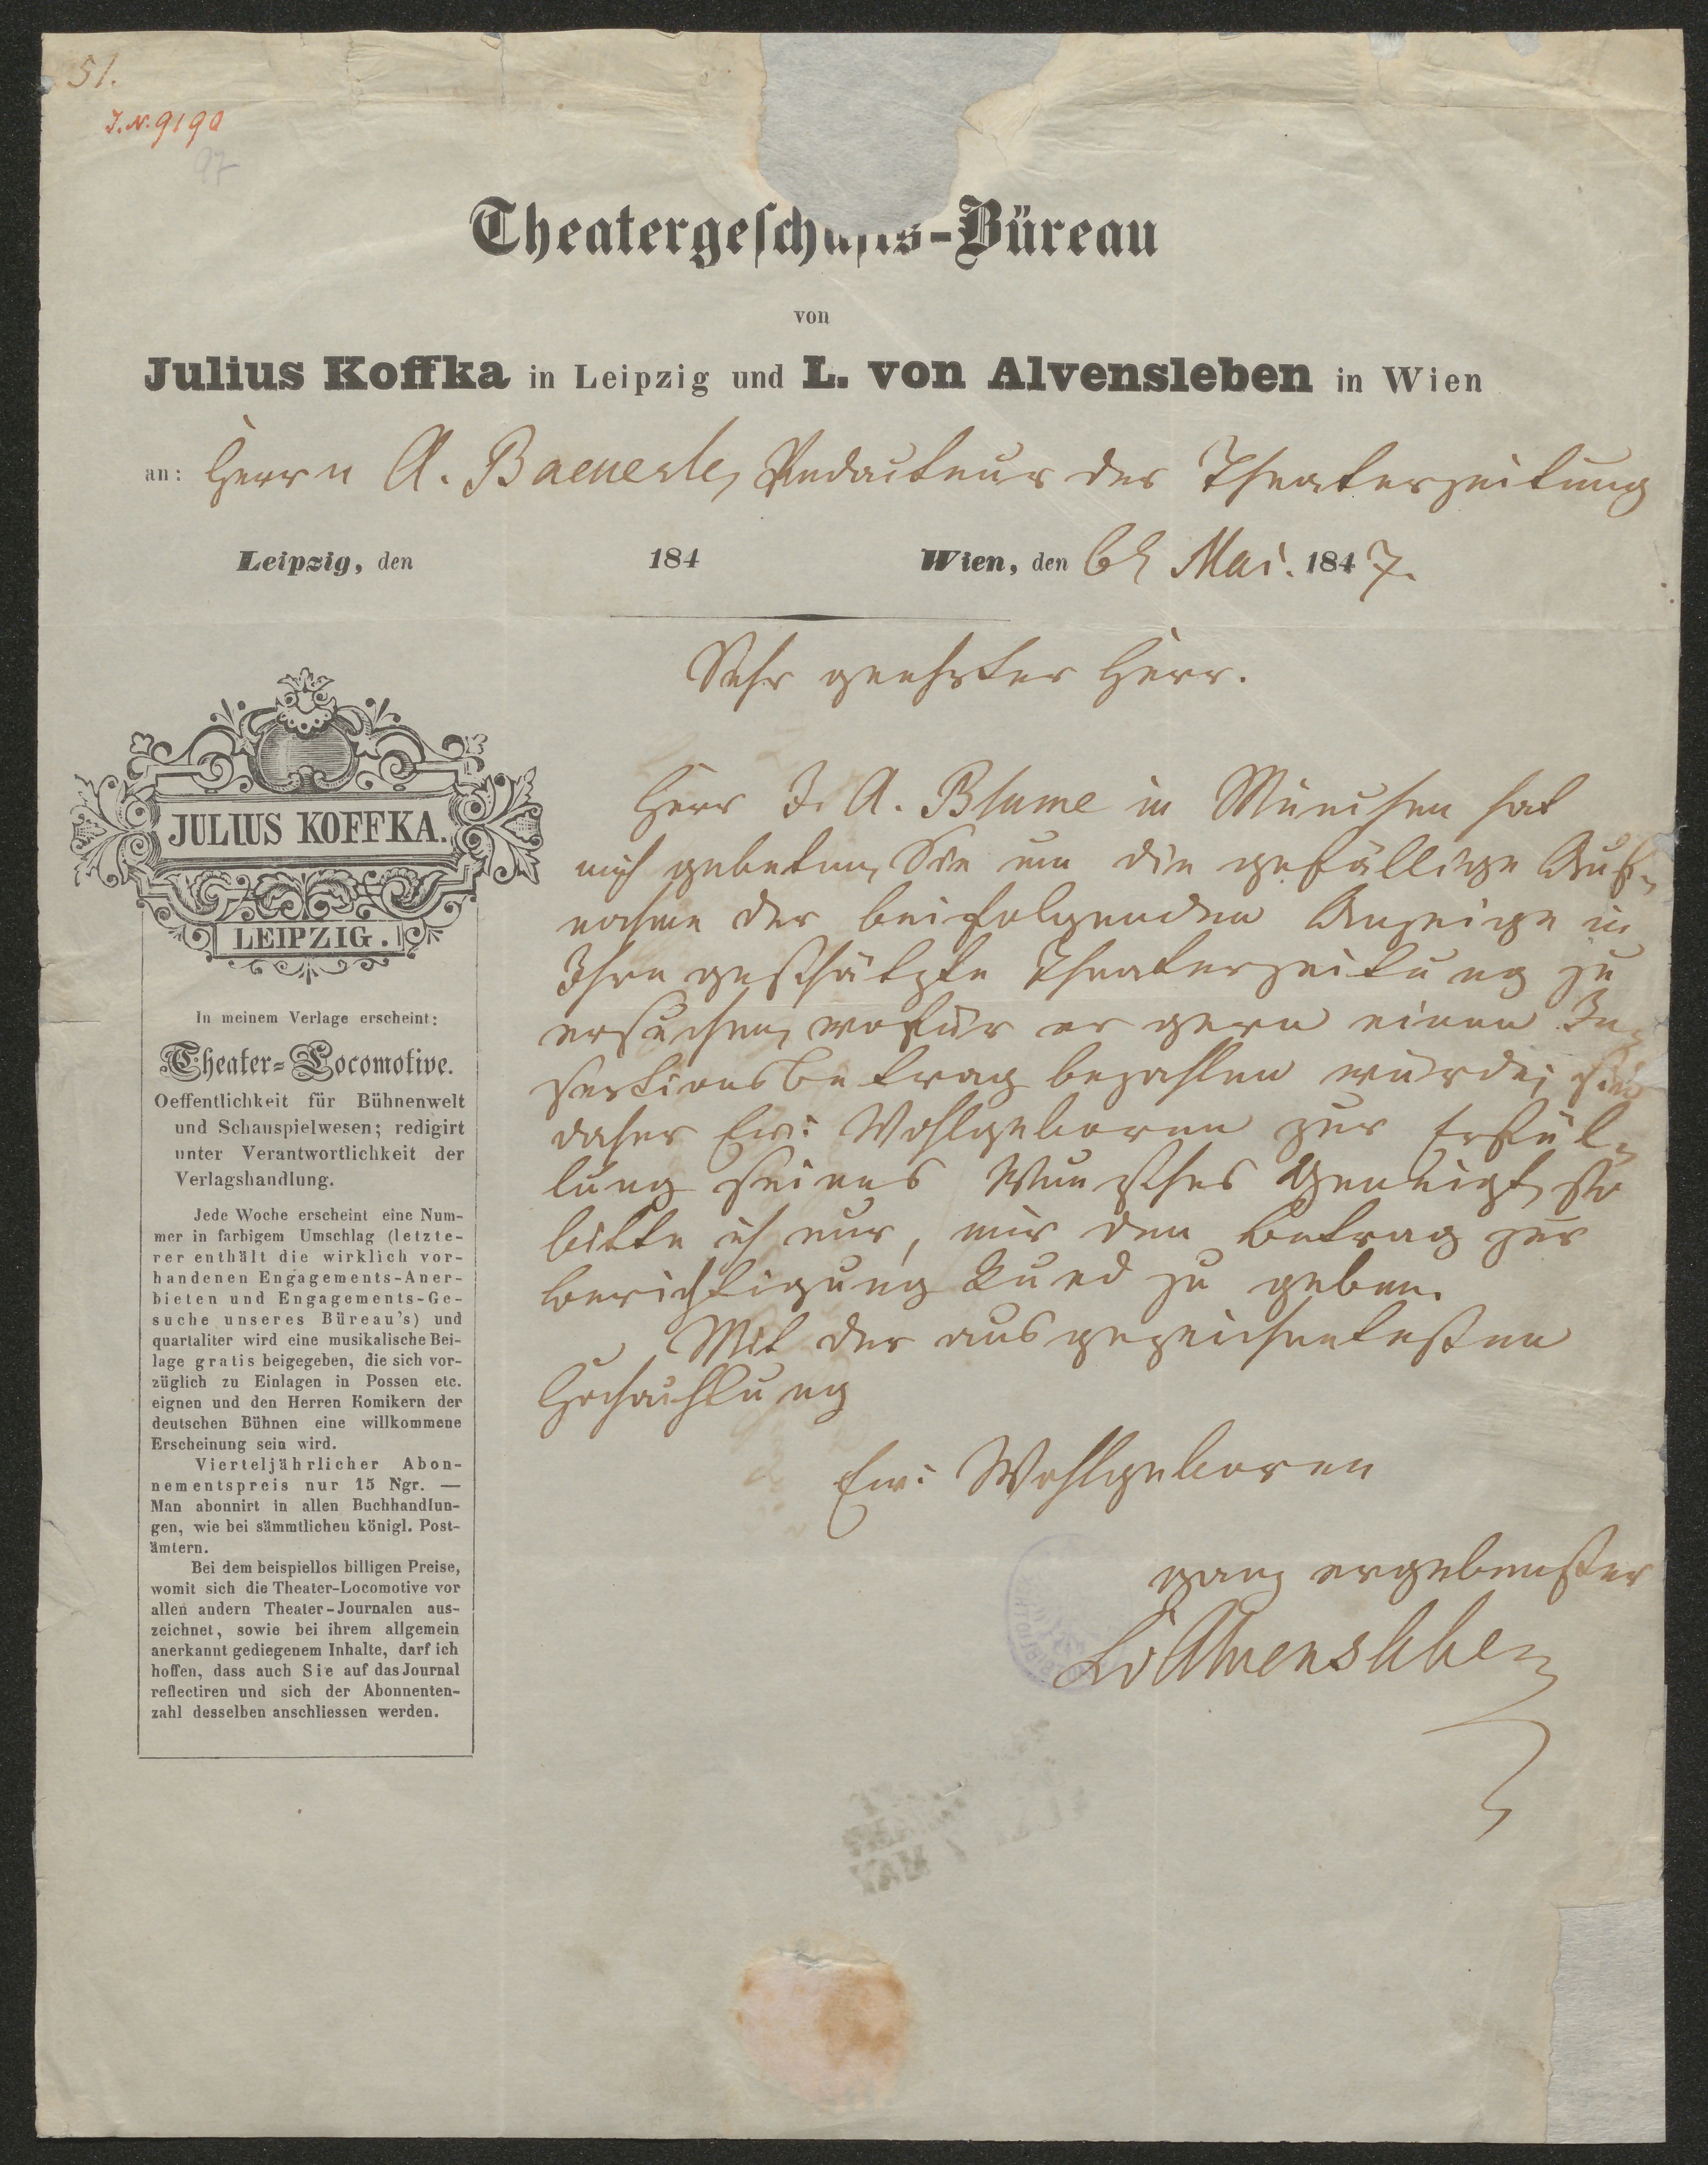 51.
J. N. 9190
97
Theatergeschäfts-Büreau
von
Julius Koffka in Leipzig und L. von Alvensleben in Wien
an: Herrn A. Baeuerle, Redacteur der Theaterzeitung
Leipzig, den 184 Wien, den 6t Mai. 1847.
Sehr geehrter Herr.
Herr J. A. Blume in München hat
mich gebeten, Sie um die gefällige Auf-
nahme der beifolgenden Anzeige in
Ihre geschätzte Theaterzeitung zu
ersuchen, wofür er gern einen In-
sertionsbetrag bezahlen würde; sind
daher Ew: Wohlgeboren zur Erfül-
lung seines Wunsches geneigt, so
bitte ich nur, mir den Betrag zur
Berichtigung kund zu geben.
Mit der ausgezeichnetesten
Hochachtung
Ew: Wohlgeboren
ganz ergebenster
LvAlvensleben
JULIUS KOFFKA.
LEIPZIG.
In meinem Verlage erscheint:
Theater-Locomotive.
Oeffentlichkeit für Bühnenwelt
und Schauspielwesen; redigirt
unter Verantwortlichkeit der
Verlagshandlung.
Jede Woche erscheint eine Num-
mer in farbigem Umschlag (letzte-
rer enthält die wirklich vor-
handenen Engagements-Aner-
bieten und Engagements-Ge-
suche unseres Büreau's) und
quartaliter wird eine musikalische Bei-
lage gratis beigegeben, die sich vor-
züglich zu Einlagen in Possen etc.
eignen und den Herren Komikern der
deutschen Bühnen eine willkommene
Erscheinung sein wird.
Vierteljährlicher Abon-
nementspreis nur 15 Ngr. —
Man abonnirt in allen Buchhandlun-
gen, wie bei sämmtlichen königl. Post-
ämtern.
Bei dem beispiellos billigen Preise,
womit sich die Theater-Locomotive vor
allen andern Theater-Journalen aus-
zeichnet, sowie bei ihrem allgemein
anerkannt gediegenem Inhalte, darf ich
hoffen, dass auch Sie auf das Journal
reflectiren und sich der Abonnenten-
zahl desselben anschliessen werden.